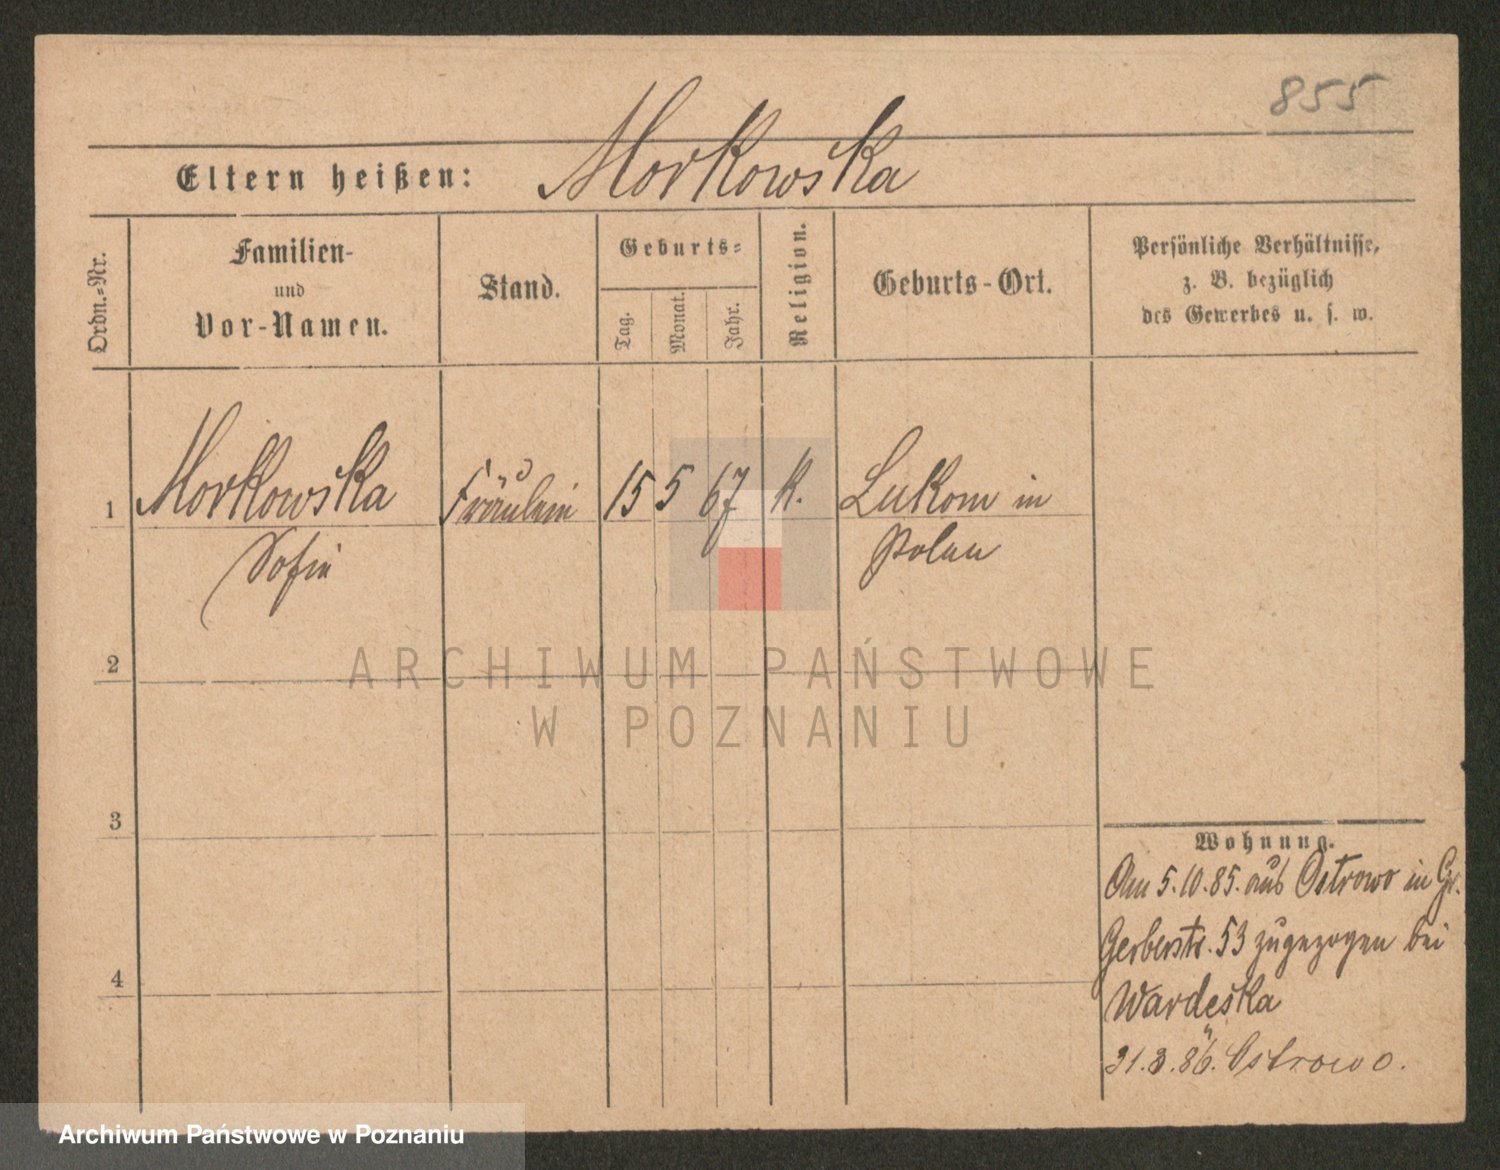 855
Eltern heißen: Morkowska
Ordn.-Nr.
Familien-
und
Vor-Namen.
Stand.
Geburts-
Tag.
Monat.
Jahr.
Religion.
Geburts-Ort.
Persönliche Verhältnisse,
z. B. bezüglich
des Gewerbes u. s. w.
1 Morkowska Fräulein 15 5 67 K. Lukom in
Sofie Polen
2
ARCHIWUM PAŃSTWOWE
W POZNANIU
3
Wohnung.
Am 5.10.85. aus Ostrowo in Gr.
Gerberstr. 53 zugezogen bei
4
Wardeska
31.3.86. Ostrowo.
Archiwum Państwowe w Poznaniu